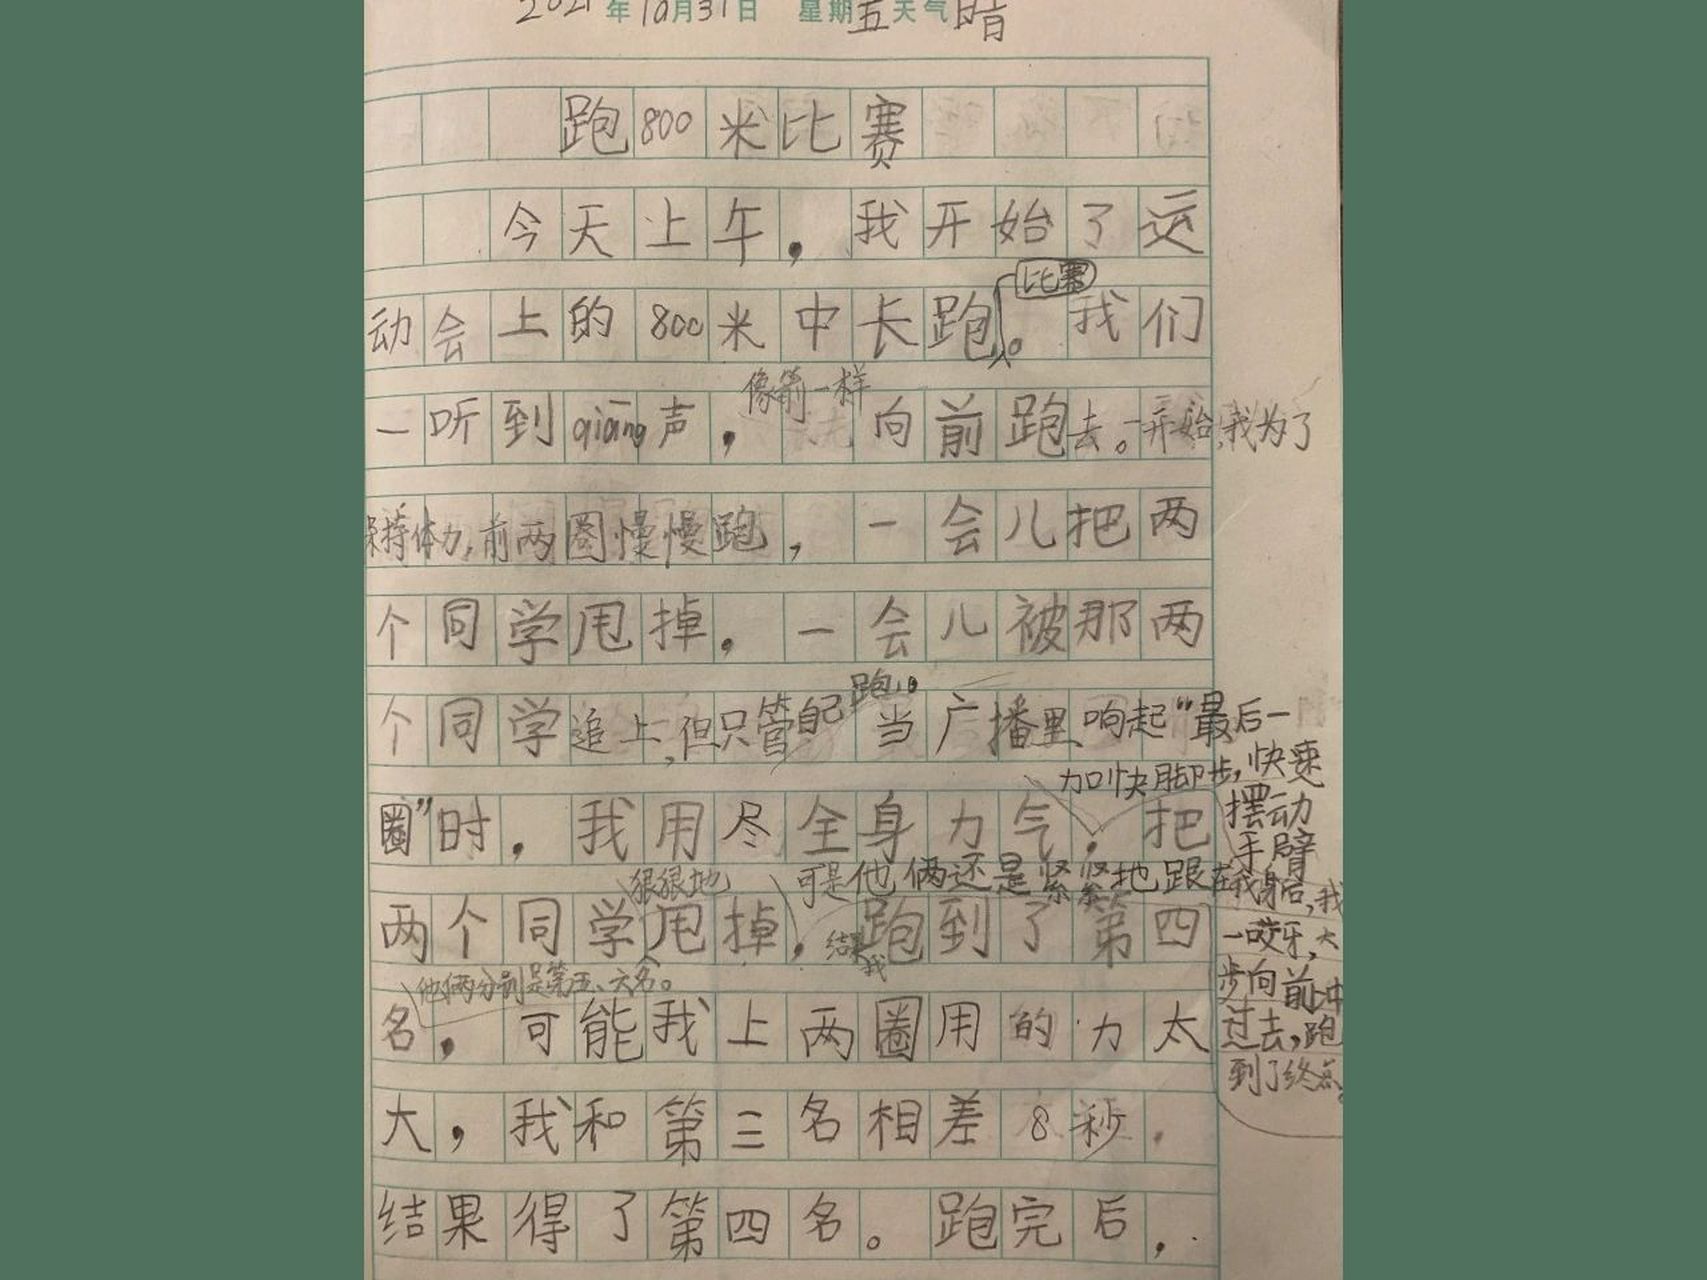 2021年10月31日 星期五天气晴
跑800米比赛
今天上午，我开始了运
比赛
动会上的800米中长跑。我们
像箭一样
一听到qiāng声，向前跑去。一开始，我为了
保持体力，前两圈慢慢跑，一会儿把两
个同学甩掉，一会儿被那两
跑。
个同学追上，但只管自己当广播里响起“最后一
加快脚步，快速
摆动
手臂
圈”时，我用尽全身力气，把
狠狠地
可是他俩还是紧紧地跟在我身后，我
一咬牙，大
步向前冲
过去，跑
到了终点。
两个同学甩掉，结果我跑到了第四
他俩分别是第五、六名。
名，可能我上两圈用的力太
大，我和第三名相差8秒，
结果得了第四名。跑完后，